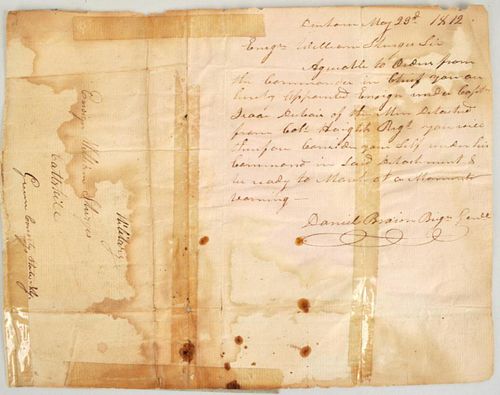 Durham May 23d. 1812.
Ensgn William Sturges Sir
Agreeable to Orders from
the Commander in Chief you are
hereby Appointed Ensign under Capt
Isaac Dubois of the Men Detached
from Colo Haight Regt you will
therefore Consider your Self under his
Command in Said Detachment &
be ready to March at a Moments
warning —
Daniel Brown Brigr Genll
Military
Ensign William Sturges
Green County State N.Y.